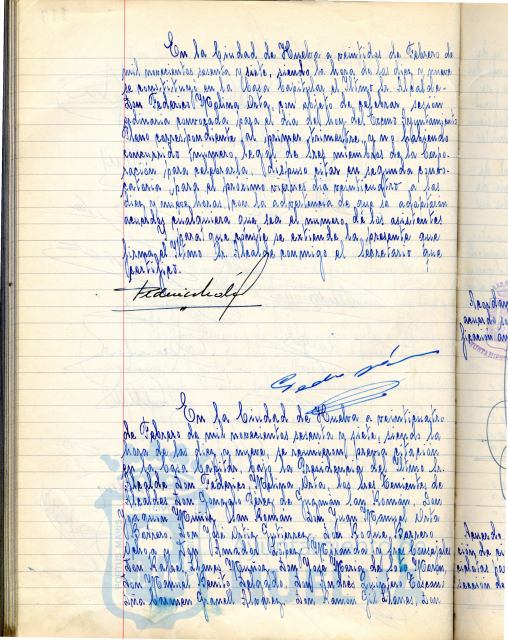 En la Ciudad de Huelva a veintidos de Febrero de
mil novecientos sesenta y siete, siendo la hora de las diez y nueve
se constituyó en la Casa Capitular el Iltmo Sr. Alcalde
Don Federico Molina Orta, con objeto de celebrar sesión
ordinaria convocada para el dia de hoy del Excmo Ayuntamiento
Pleno correspondiente al primer trimestre, y no habiendo
concurrido número legal de tres miembros de la Corpo-
ración para celebrarla, dispuso citar en segunda convo-
catoria para el próximo viernes dia veinticuatro a las
diez y nueve horas, con la advertencia de que se adoptaran
acuerdos cualquiera que sea el número de los asistentes
Y para que conste se extiende la presente que
firma el Iltmo Sr. Alcalde conmigo el Secretario que
certifico.
En la Ciudad de Huelva a veinticuatro
de Febrero de mil novecientos sesenta y siete, siendo la
hora de las diez y nueve, se reunieron previa citación
en la Casa Capitular bajo la Presidencia del Iltmo Sr.
Alcalde Don Federico Molina Orta, los tres Tenientes de
Alcaldes Don Gonzalo Pérez de Guzmán San Román, Don
Joaquin Muñiz San Román Don Juan Manuel Orta
Don Roque Barrero
Don Rafael Don José Maria de los
Don Manuel Benito Delgado Don Andrés Quintero
Doña Carmen Don Ramón Gil Llanes, Don
acuerdo
Acuerdo